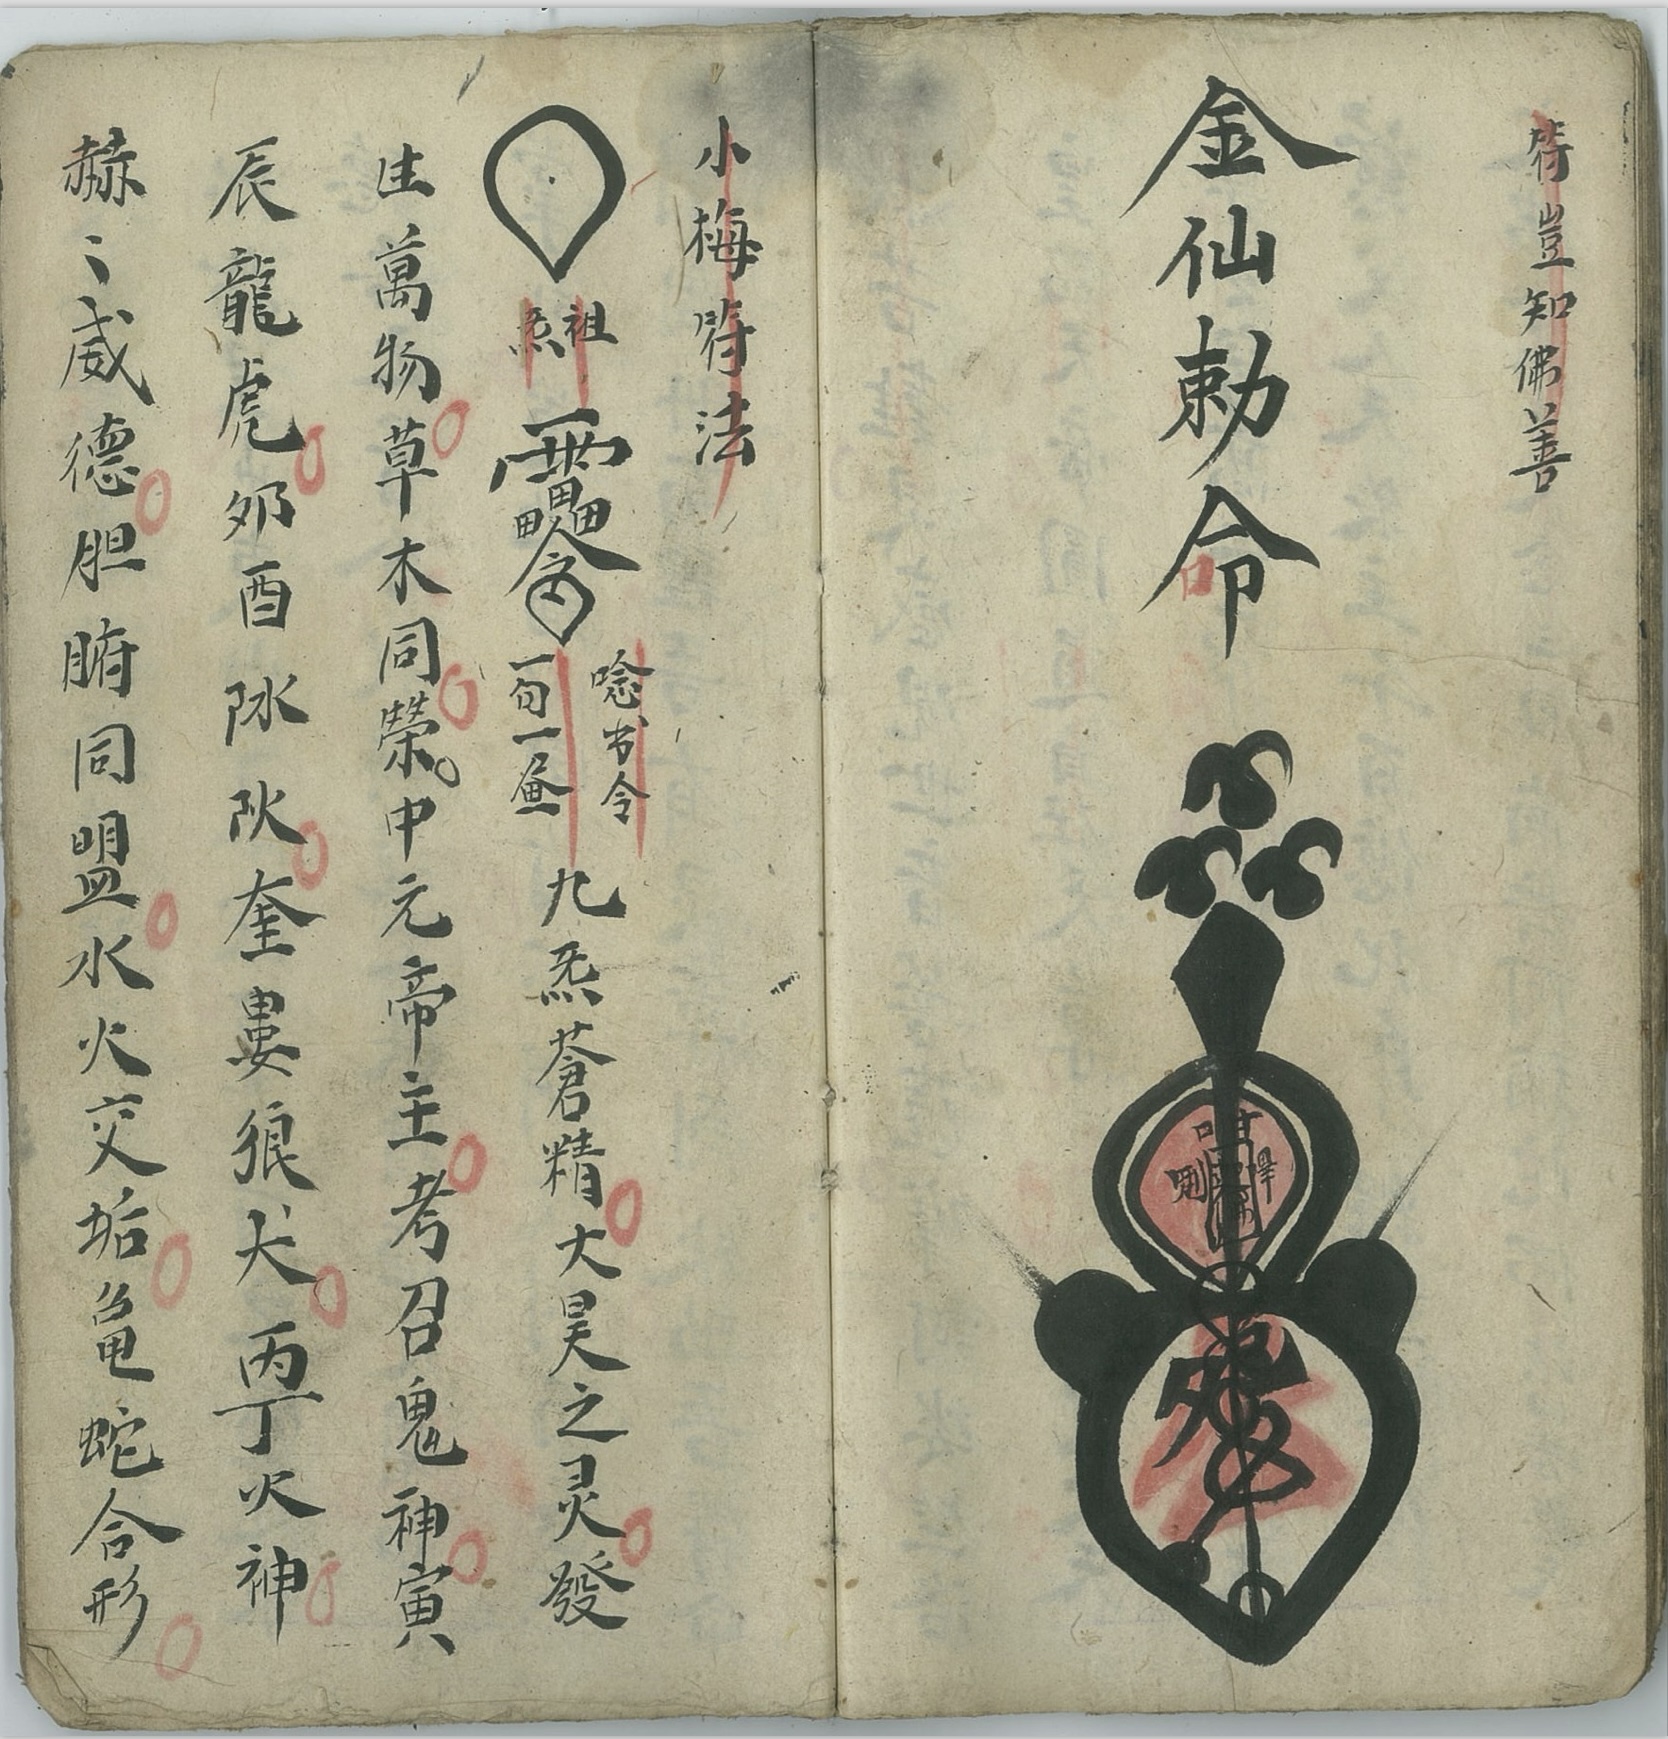 符豈知佛善
金仙勅令
小梅符法
祖
炁
唸書令
一句一
九炁蒼精大昊之灵發
生萬物草木同榮中元帝主考召鬼神寅
辰龍虎夘酉奎婁狼犬丙丁火神
赫〻威德胆腑同盟水火交垢龜蛇合形